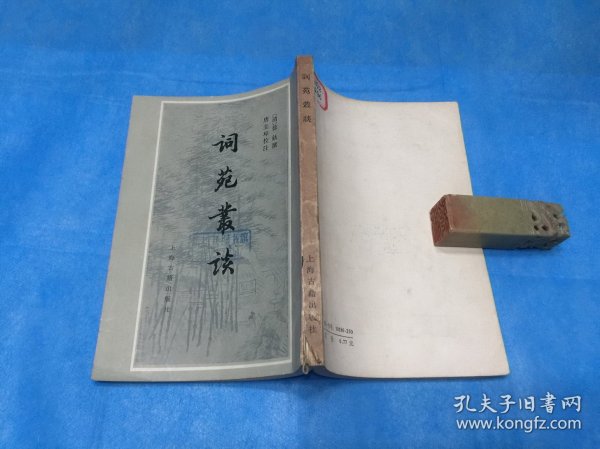 〔清〕徐釚撰
唐圭璋校注
词苑叢谈
上海古籍出版社
词苑叢谈
上海古籍出版社
0.77元
孔夫子旧书网
www.kongfz.com